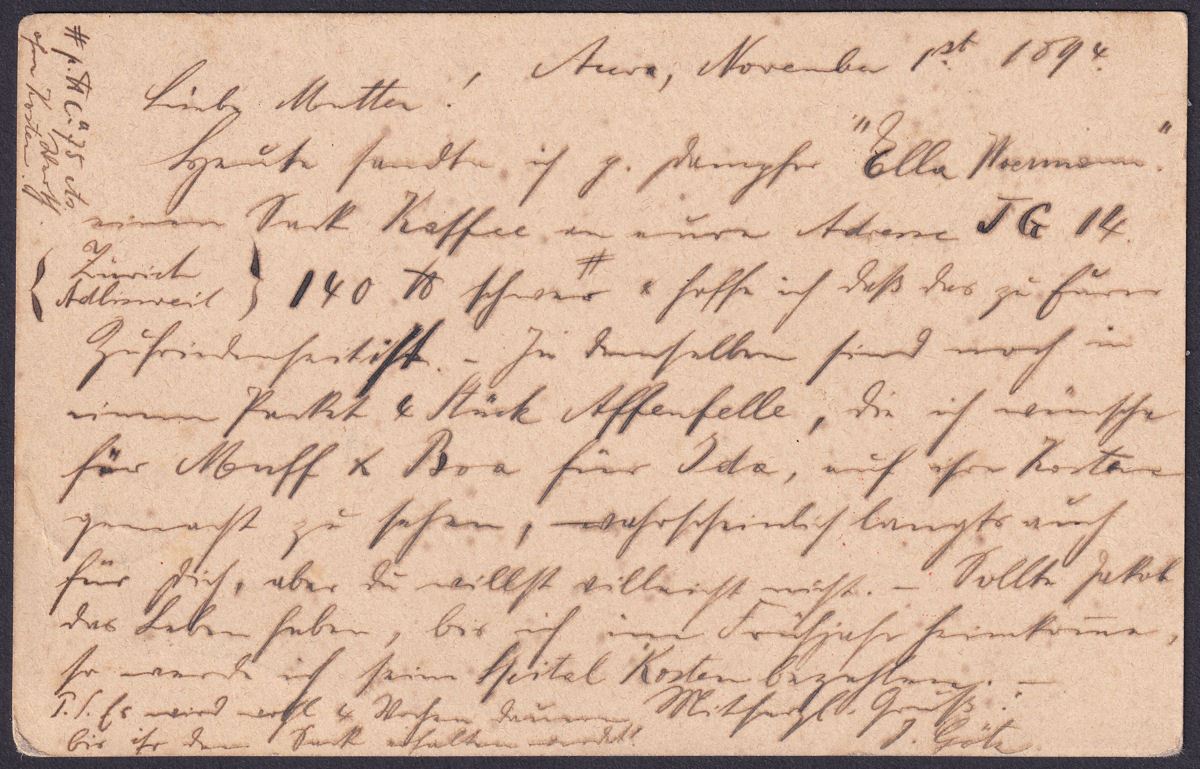 Accra, November 1st 1894.
Liebe Mutter!
Heute sandte ich p. Dampfer "Ella Woermann"
einen Sack Kaffee an eure Adresse JG 14.
{ Zürich Adlisweil } 140 ℔ schwer # & hoffe ich daß das zu Eurer
Zufriedenheit ist. – In demselben sind noch in
einem Packet 4 Stück Affenfelle, die ich wünsche
für Muff & Boa für Ida, auf ihre Kosten
gemacht zu sehen, wahrscheinlich langts auch
für Dich, aber du willst villeicht nicht. – Sollte Jakob
das Leben haben, bis ich im Frühjahr heimkomme,
so werde ich seine Spital Kosten bezahlen. –
Mit herzl. Gruß!
J. Götz.
P.S. Es wird wohl 4 Wochen dauern
bis ihr den Sack erhalten werdet!
# p. ℔ à 75
ohne Kosten.